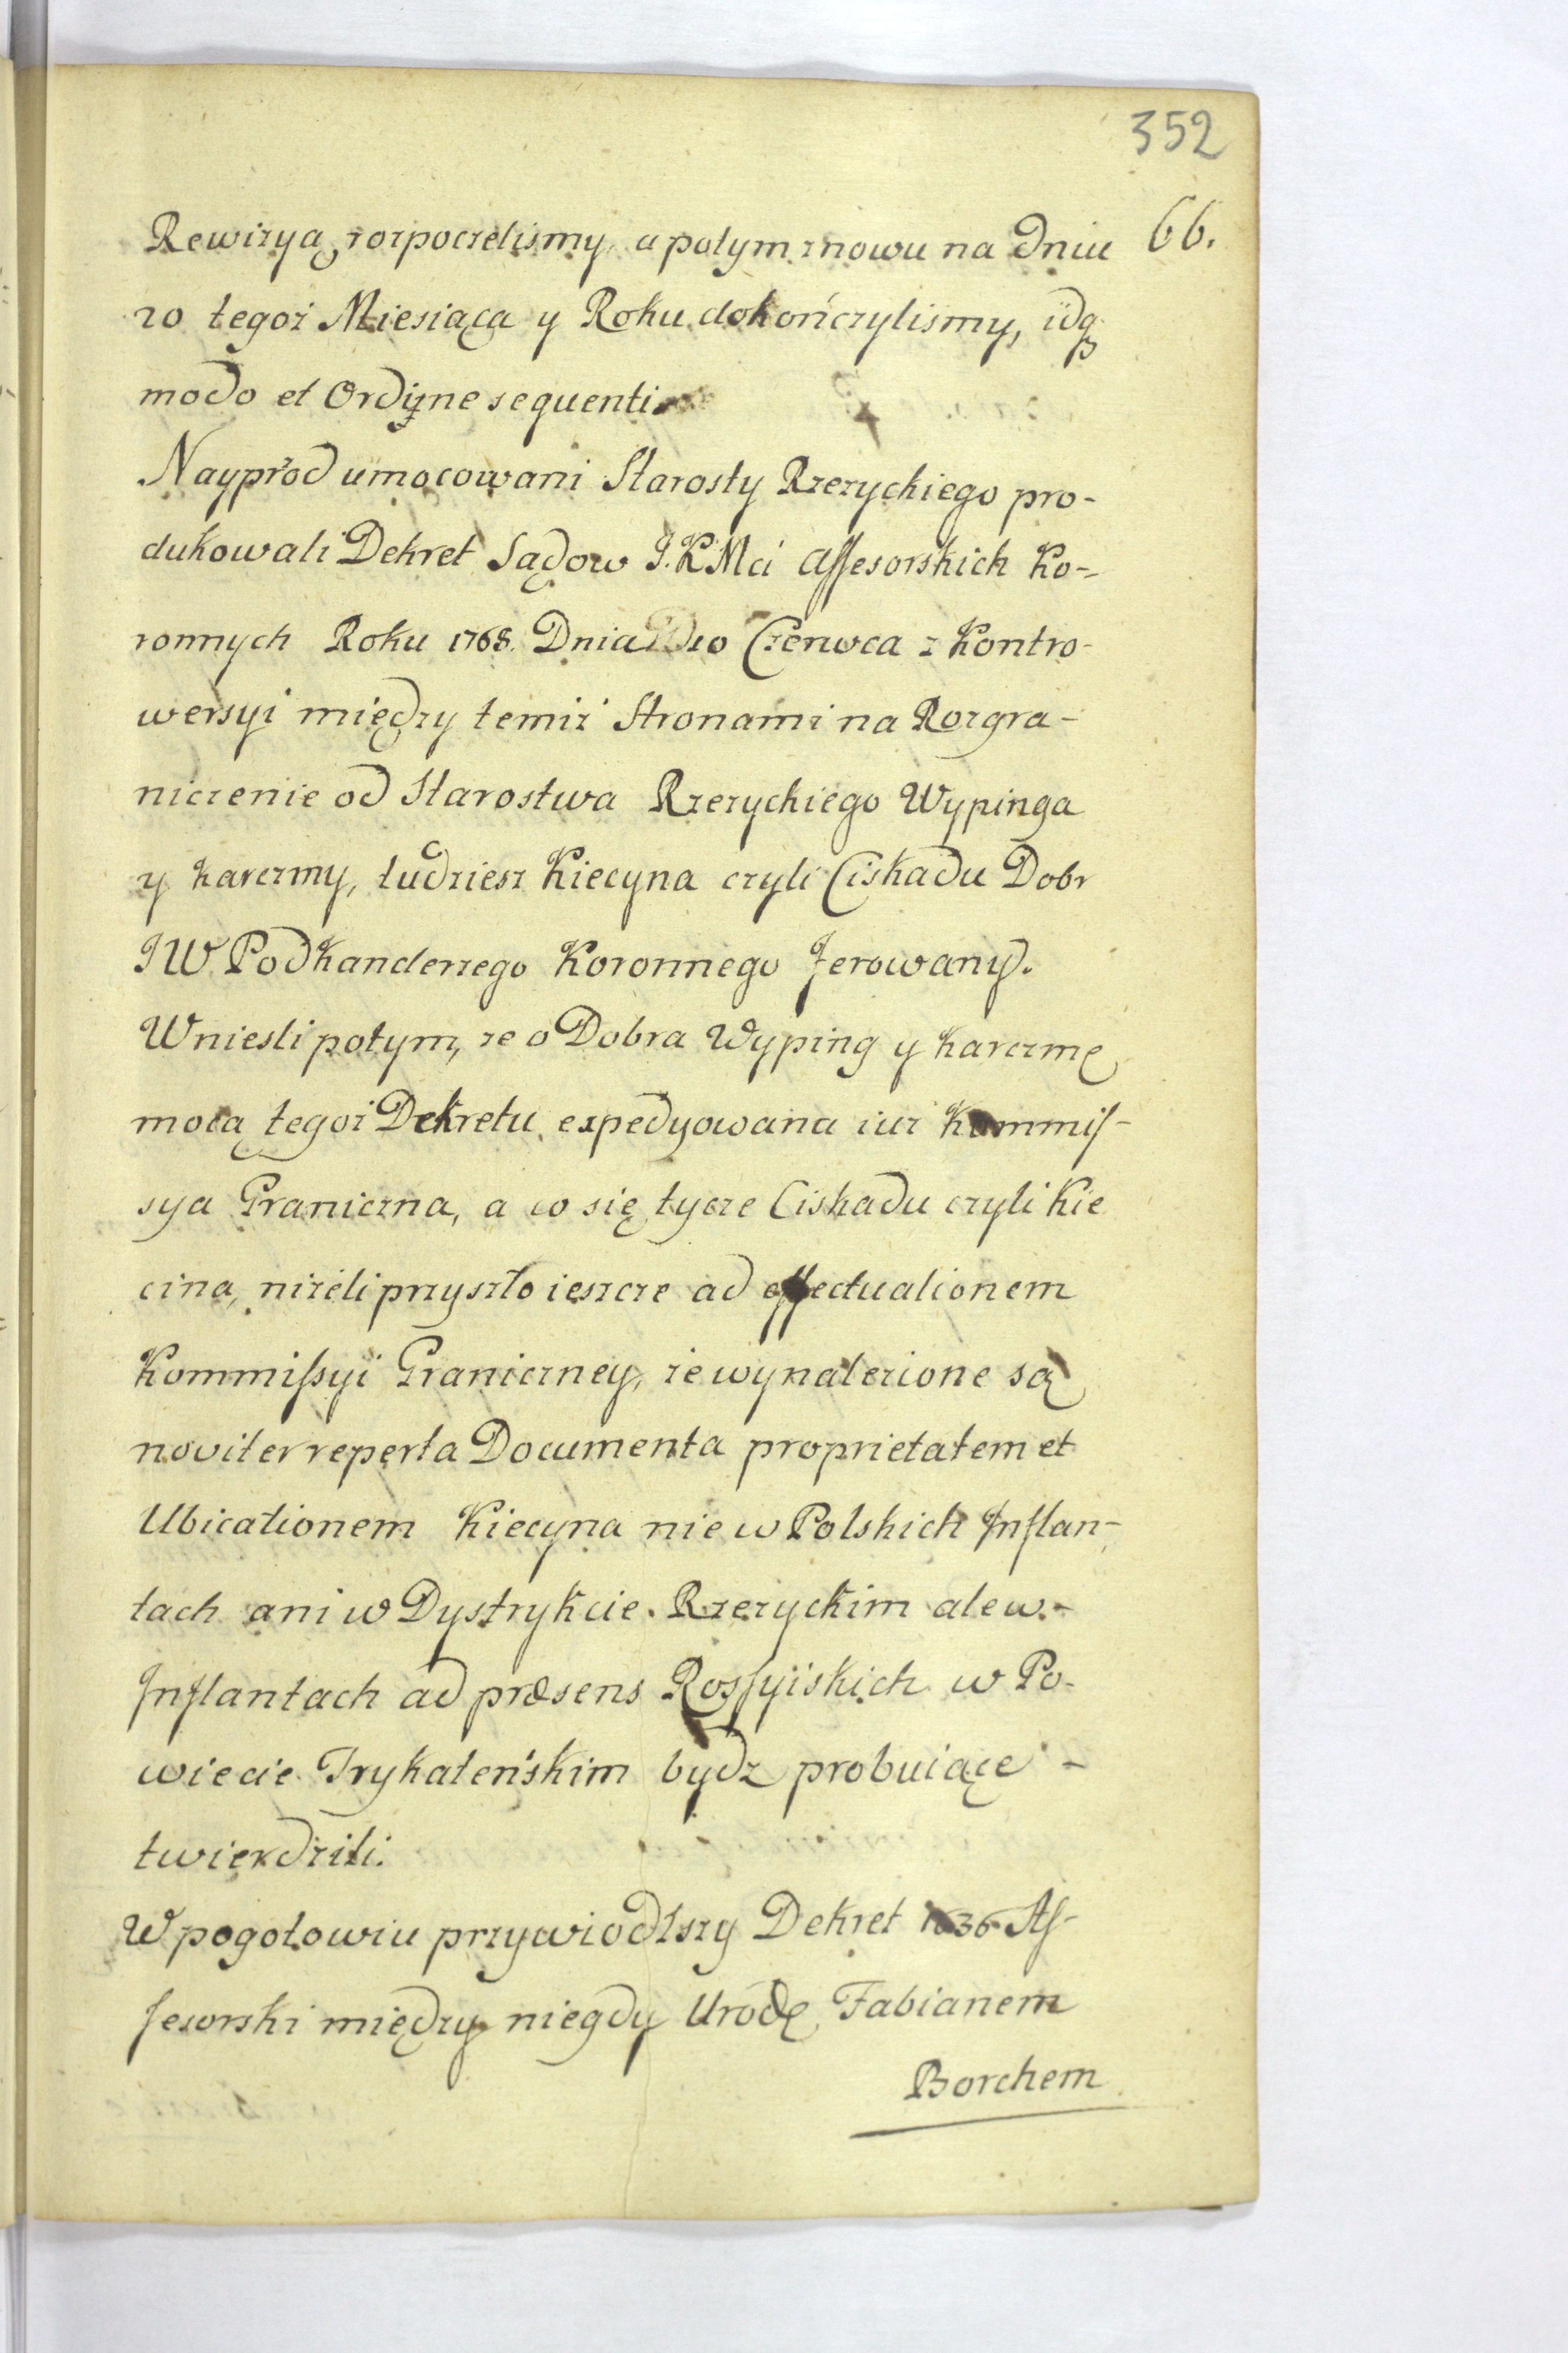 352
66.
Rewizyą rozpoczelismy, a potym znowu na Dniu
20 tegoż Miesiąca y Roku dokończylismy, idq
modo et Ordine sequenti
Nayprzod umocowani Starosty Rzezyckiego pro-
dukowali Dekret Sądow J. K Mci Assesorskich Ko-
ronnych Roku 1768. Dnia 10 Czerwca z Kontro-
wersyi między temiż Stronami na Rozgra-
niczenie od Starostwa Rzezyckiego Wypinga
y Karczmy, tudziesz Kiecyna czyli Ciskadu Dobr
JW Podkanclerzego Koronnego ferowany.
Wniesli potym, że o Dobra Wyping y karczmę
mocą tegoż Dekretu expedyowana iuż Kommis-
sya Graniczna, a co się tycze Ciskadu czyli Kie
cina, niżeli przyszło ieszcze ad effectuationem
Kommissyi Graniczney, że wynalezione są
noviter reperta Documenta proprietatem et
Ubicationem Kiecyna nie w Polskich Inflan-
tach ani w Dystrykcie Rzezyckim ale w-
Inflantach ad præsens Rossyiskich w Po-
wiecie Trykateńskim bydz probuiące -
twierdzili.
W pogotowiu przywiodłszy Dekret 1636 As-
sesorski między niegdy Urodę Fabianem
Borchem